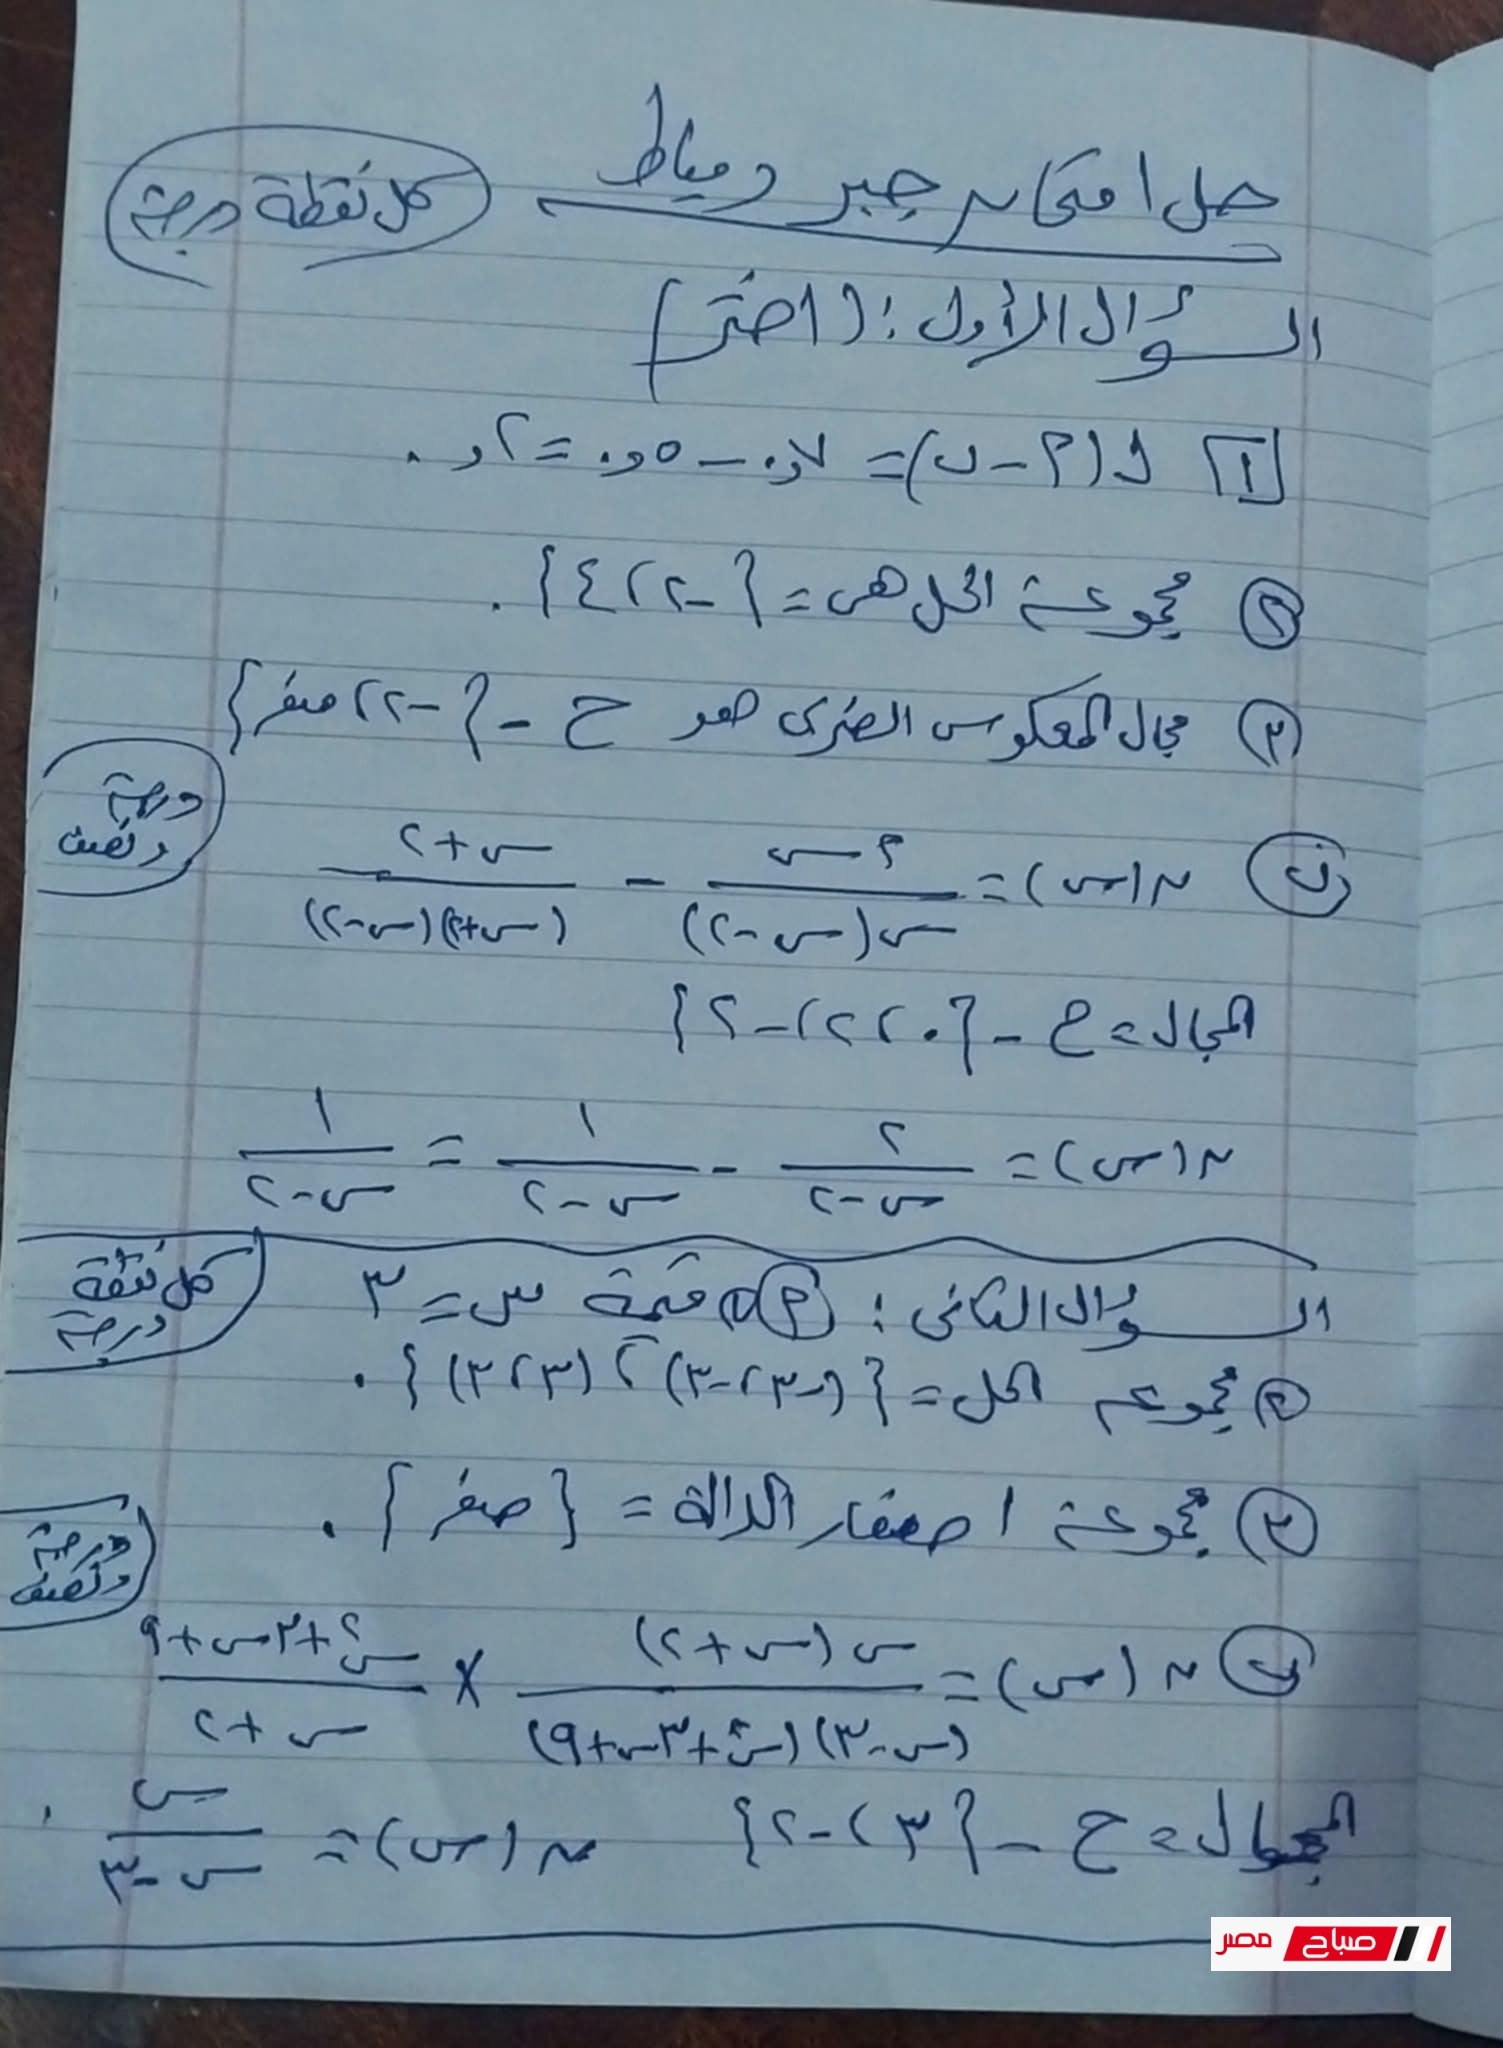 حل امتحان جبر دمياط
كل نقطة درجة
السؤال الأول: (اختر)
١ ل(٢ - ب) = ٧و٠ - ٥و٠ = ٢و٠
٢ مجموعة الحل هى = {-٢، ٤}.
٣ مجال المعكوس الضربى هو ح - {-٢، ٢، صفر}
درجة ونصف
ب ن(س) = ٢س / س(س-٢) - س+٢ / (س+٢)(س-٢)
المجال = ح - {٠، ٢، -٢}
ن(س) = ٢ / س-٢ - ١ / س-٢ = ١ / س-٢
السؤال الثانى: ٢ ١ قيمة س = ٣
كل نقطة درجة
٢ مجموعة الحل = {(-٣، -٣)، (٣، ٣)}.
٣ مجموعة اصفار الدالة = {صفر}.
درجة ونصف
ب ن(س) = س(س+٢) / (س-٣)(س٢+٣س+٩) × س٢+٣س+٩ / س+٢
المجال = ح - {٣، -٢} ن(س) = س / س-٣
صباح مصر